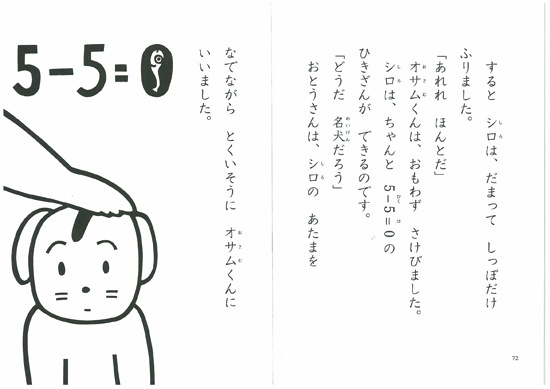 すると　シロは、だまって　しっぽだけ
ふりました。
「あれれ　ほんとだ」
オサムくんは、おもわず　さけびました。
シロは、ちゃんと　5-5=0の
ひきざんが　できるのです。
「どうだ　名犬だろう」
おとうさんは、シロの　あたまを
72
なでながら　とくいそうに　オサムくんに
いいました。
5-5=0